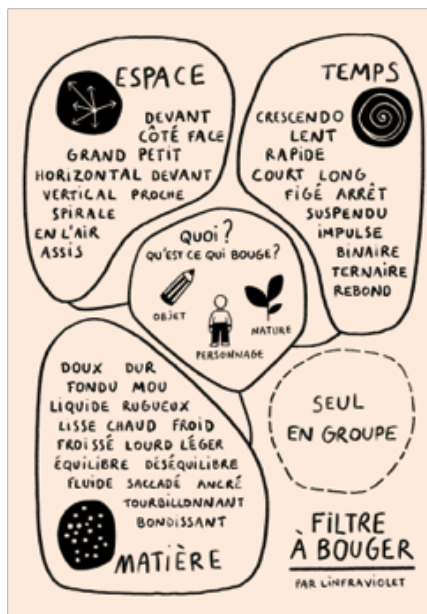 ESPACE
DEVANT
CÔTÉ FACE
GRAND PETIT
HORIZONTAL DEVANT
VERTICAL PROCHE
SPIRALE
EN L'AIR
ASSIS
TEMPS
CRESCENDO
LENT
RAPIDE
COURT LONG
FIGÉ ARRÊT
SUSPENDU
IMPULSE
BINAIRE
TERNAIRE
REBOND
QUOI?
QU'EST CE QUI BOUGE?
OBJET
PERSONNAGE
NATURE
DOUX DUR
FONDU MOU
LIQUIDE RUGUEUX
LISSE CHAUD FROID
FROISSÉ LOURD LÉGER
ÉQUILIBRE DÉSÉQUILIBRE
FLUIDE SACCADÉ ANCRÉ
TOURBILLONNANT
BONDISSANT
MATIÈRE
SEUL
EN GROUPE
FILTRE
À BOUGER
PAR LINFRAVIOLET